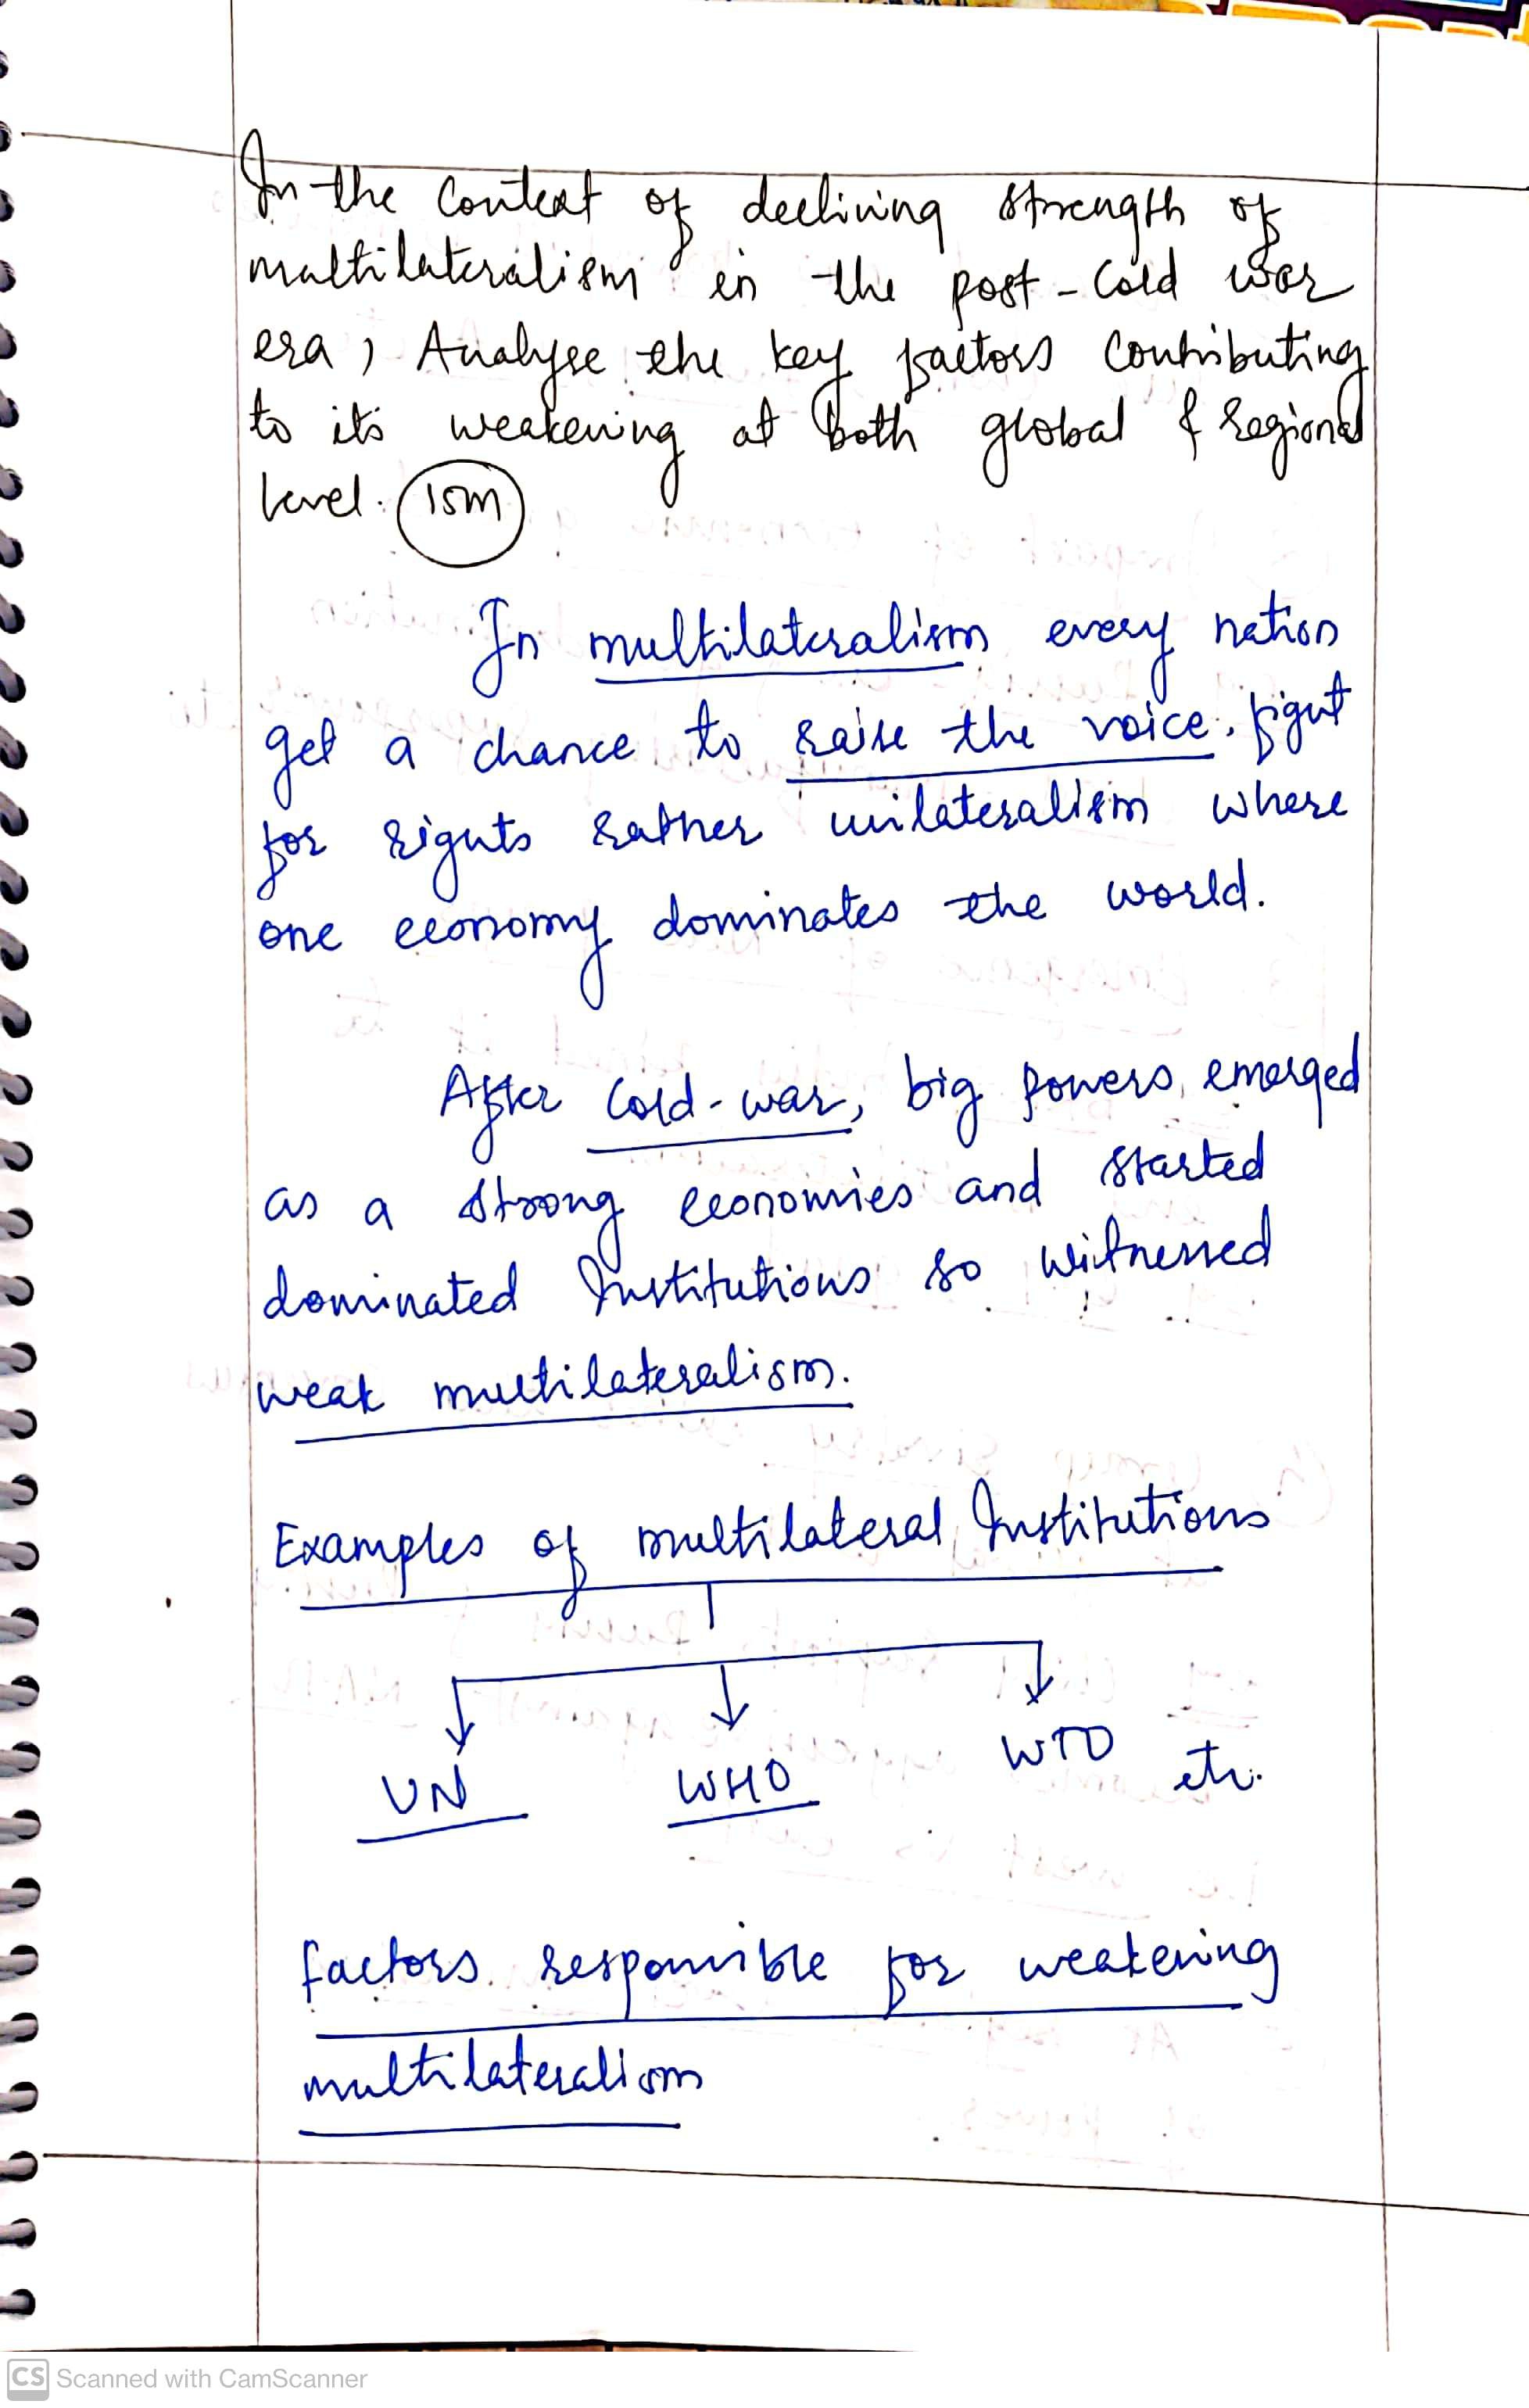 In the Context of declining strength of
multilateralism in the post-Cold war
era, Analyse the key factors contributing
to its weakening at both global & regional
level. 15m
In multilateralism every nation
get a chance to raise the voice, fight
for rights rather unilateralism where
one economy dominates the world.
After Cold-war, big powers emerged
as a strong economies and started
dominated Institutions so witnessed
weak multilateralism.
Examples of multilateral Institutions
UN WHO WTO etc.
factors responsible for weakening
multilateralism
CS Scanned with CamScanner